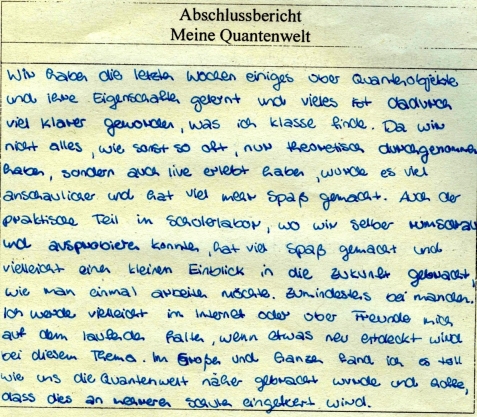 Abschlussbericht
Meine Quantenwelt
Wir haben die letzten Wochen einiges über Quantenobjekte
und ihre Eigenschaften gelernt und vieles ist dadurch
viel klarer geworden, was ich klasse finde. Da wir
nicht alles, wie sonst so oft, nur theoretisch durchgenommen
haben, sondern auch live erlebt haben, wurde es viel
anschaulicher und hat viel mehr Spaß gemacht. Auch der
praktische Teil im Schülerlabor, wo wir selber
und ausprobieren konnten, hat viel Spaß gemacht und
vielleicht einen kleinen Einblick in die Zukunft gebracht,
wie man einmal arbeiten möchte. Zumindestens bei manchen.
Ich werde vielleicht im Internet oder über Freunde mich
auf dem laufenden halten, wenn etwas neu entdeckt wird
bei diesem Thema. Im Großen und Ganzen fand ich es toll
wie uns die Quantenwelt näher gebracht wurde und hoffe,
dass dies an mehreren Schulen eingeführt wird.